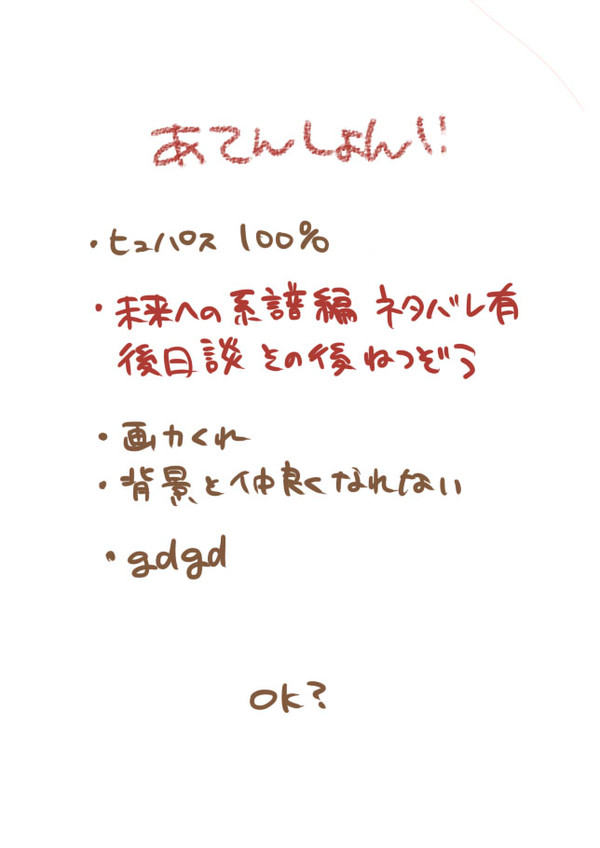 あてんしょん!!
・ヒュパス 100%
・未来への系譜編 ネタバレ有
後日談 その後 ねつぞう
・画力くれ
・背景と仲良くなれない
・gdgd
OK?